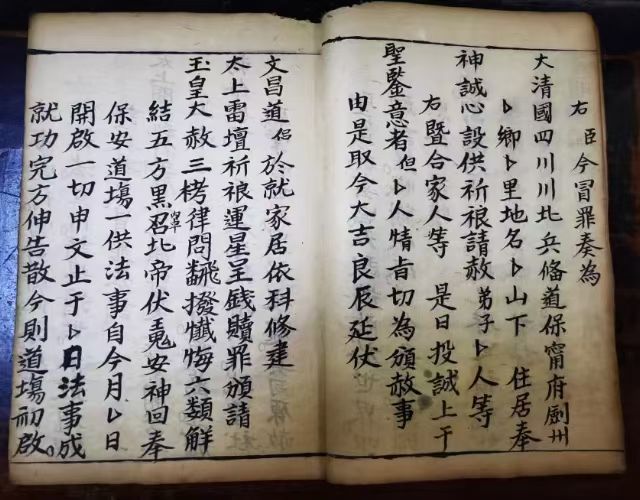 右臣今冒罪奏為
大清國四川川北兵俻道保甯府劍州
卜鄉卜里地名卜山下 住居奉
神誠心設供祈禳請赦弟子卜人等
右暨合家人等 是日投誠上干
聖鑒意者但卜人情旨切為頒赦事
由是取今大吉良辰延伏
文昌道侶於就家居依科修建
太上雷壇祈禳運星呈錢贖罪頒請
玉皇大赦三栲律問翻飛撥懺悔六類解
結五方黑召北帝伏䰟安神回奉
保安道塲一供法事自今月卜日
開啟一切申文止于卜日法事成
就功完方伸告散今則道塲初啟。